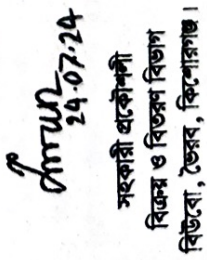 24.07.24
সহকারী প্রকৌশলী
বিক্রয় ও বিতরণ বিভাগ
বিউবো, ভৈরব, কিশোরগঞ্জ।